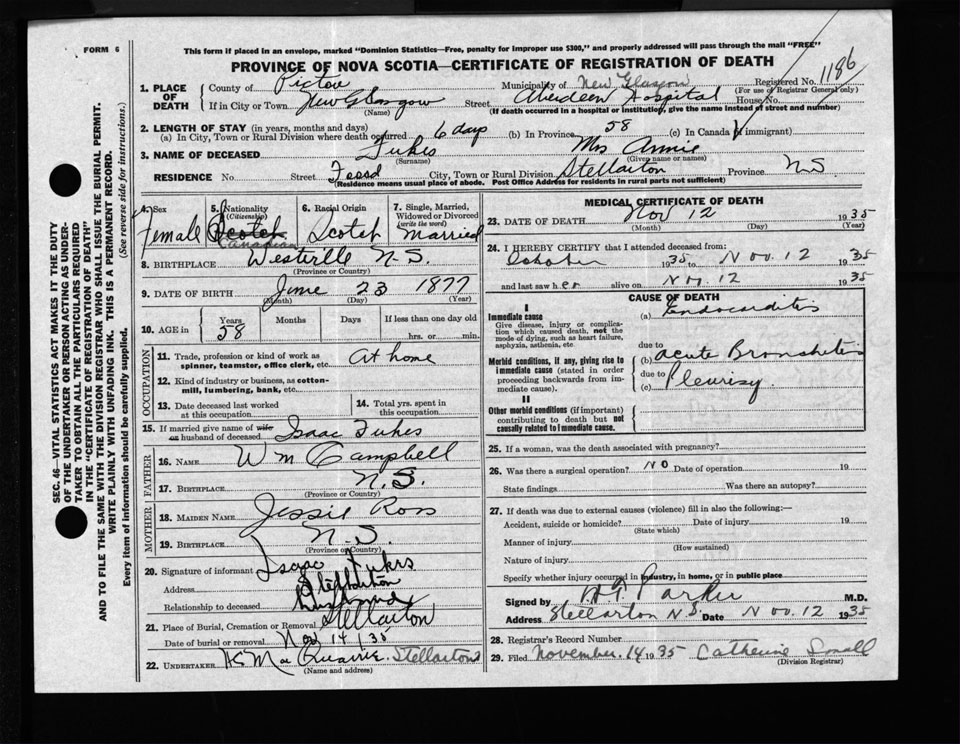 FORM 6
This form if placed in an envelope, marked "Dominion Statistics—Free, penalty for improper use $300," and properly addressed will pass through the mail "FREE"
PROVINCE OF NOVA SCOTIA—CERTIFICATE OF REGISTRATION OF DEATH
1. PLACE OF DEATH
County of Pictou Municipality of New Glasgow Registered No. 1186
(For use of Registrar General only)
If in City or Town New Glasgow Street Aberdeen Hospital House No.
(Name) (If death occurred in a hospital or institution, give the name instead of street and number)
2. LENGTH OF STAY (in years, months and days)
(a) In City, Town or Rural Division where death occurred 6 days (b) In Province 58 (c) In Canada (if immigrant)
3. NAME OF DECEASED Fukes Mrs Annie
(Surname) (Given name or names)
RESIDENCE No. Street City, Town or Rural Division Stellarton Province NS
(Residence means usual place of abode. Post Office Address for residents in rural parts not sufficient)
4. Sex Female
5. Nationality (Citizenship) Scotch Canadian
6. Racial Origin Scotch
7. Single, Married, Widowed or Divorced (write the word) Married
8. BIRTHPLACE Westville N.S.
(Province or Country)
9. DATE OF BIRTH June 23 1877
(Month) (Day) (Year)
10. AGE in Years 58 Months Days If less than one day old
hrs. or min.
OCCUPATION
11. Trade, profession or kind of work as spinner, teamster, office clerk, etc. At home
12. Kind of industry or business, as cotton-mill, lumbering, bank, etc.
13. Date deceased last worked at this occupation
14. Total yrs. spent in this occupation
15. If married give name of wife or husband of deceased Isaac Fukes
FATHER
16. NAME Wm Campbell
17. BIRTHPLACE N.S.
(Province or Country)
MOTHER
18. MAIDEN NAME Jessie Ross
19. BIRTHPLACE N.S.
(Province or Country)
20. Signature of informant Isaac Fukes
Address Stellarton
Relationship to deceased husband
21. Place of Burial, Cremation or Removal Stellarton
Date of burial or removal Nov 14/35
22. UNDERTAKER Stellarton
(Name and address)
MEDICAL CERTIFICATE OF DEATH
23. DATE OF DEATH Nov 12 1935
(Month) (Day) (Year)
24. I HEREBY CERTIFY that I attended deceased from:
October 1935 to Nov. 12 1935
and last saw her alive on Nov. 12 1935
CAUSE OF DEATH
I
Immediate cause
Give disease, injury or complication which caused death, not the mode of dying, such as heart failure, asphyxia, asthenia, etc.
(a) Endocarditis
due to
Morbid conditions, if any, giving rise to immediate cause (stated in order proceeding backwards from immediate cause).
(b) acute Bronchitis
due to
(c) Pleurisy.
II
Other morbid conditions (if important) contributing to death but not causally related to immediate cause.
25. If a woman, was the death associated with pregnancy?
26. Was there a surgical operation? NO Date of operation 19
State findings Was there an autopsy?
27. If death was due to external causes (violence) fill in also the following:—
Accident, suicide or homicide? Date of injury 19
(State which)
Manner of injury
(How sustained)
Nature of injury
Specify whether injury occurred in industry, in home, or in public place
Signed by Parker M.D.
Address Stellarton N.S. Date Nov. 12 1935
28. Registrar's Record Number
29. Filed November. 14 1935 Catherine
(Division Registrar)
SEC. 46—VITAL STATISTICS ACT MAKES IT THE DUTY
OF THE UNDERTAKER OR PERSON ACTING AS UNDER-
TAKER TO OBTAIN ALL THE PARTICULARS REQUIRED
IN THE "CERTIFICATE OF REGISTRATION OF DEATH"
AND TO FILE THE SAME WITH THE DIVISION REGISTRAR WHO SHALL ISSUE THE BURIAL PERMIT.
WRITE PLAINLY WITH UNFADING INK. THIS IS A PERMANENT RECORD.
Every item of information should be carefully supplied. (See reverse side for instructions.)